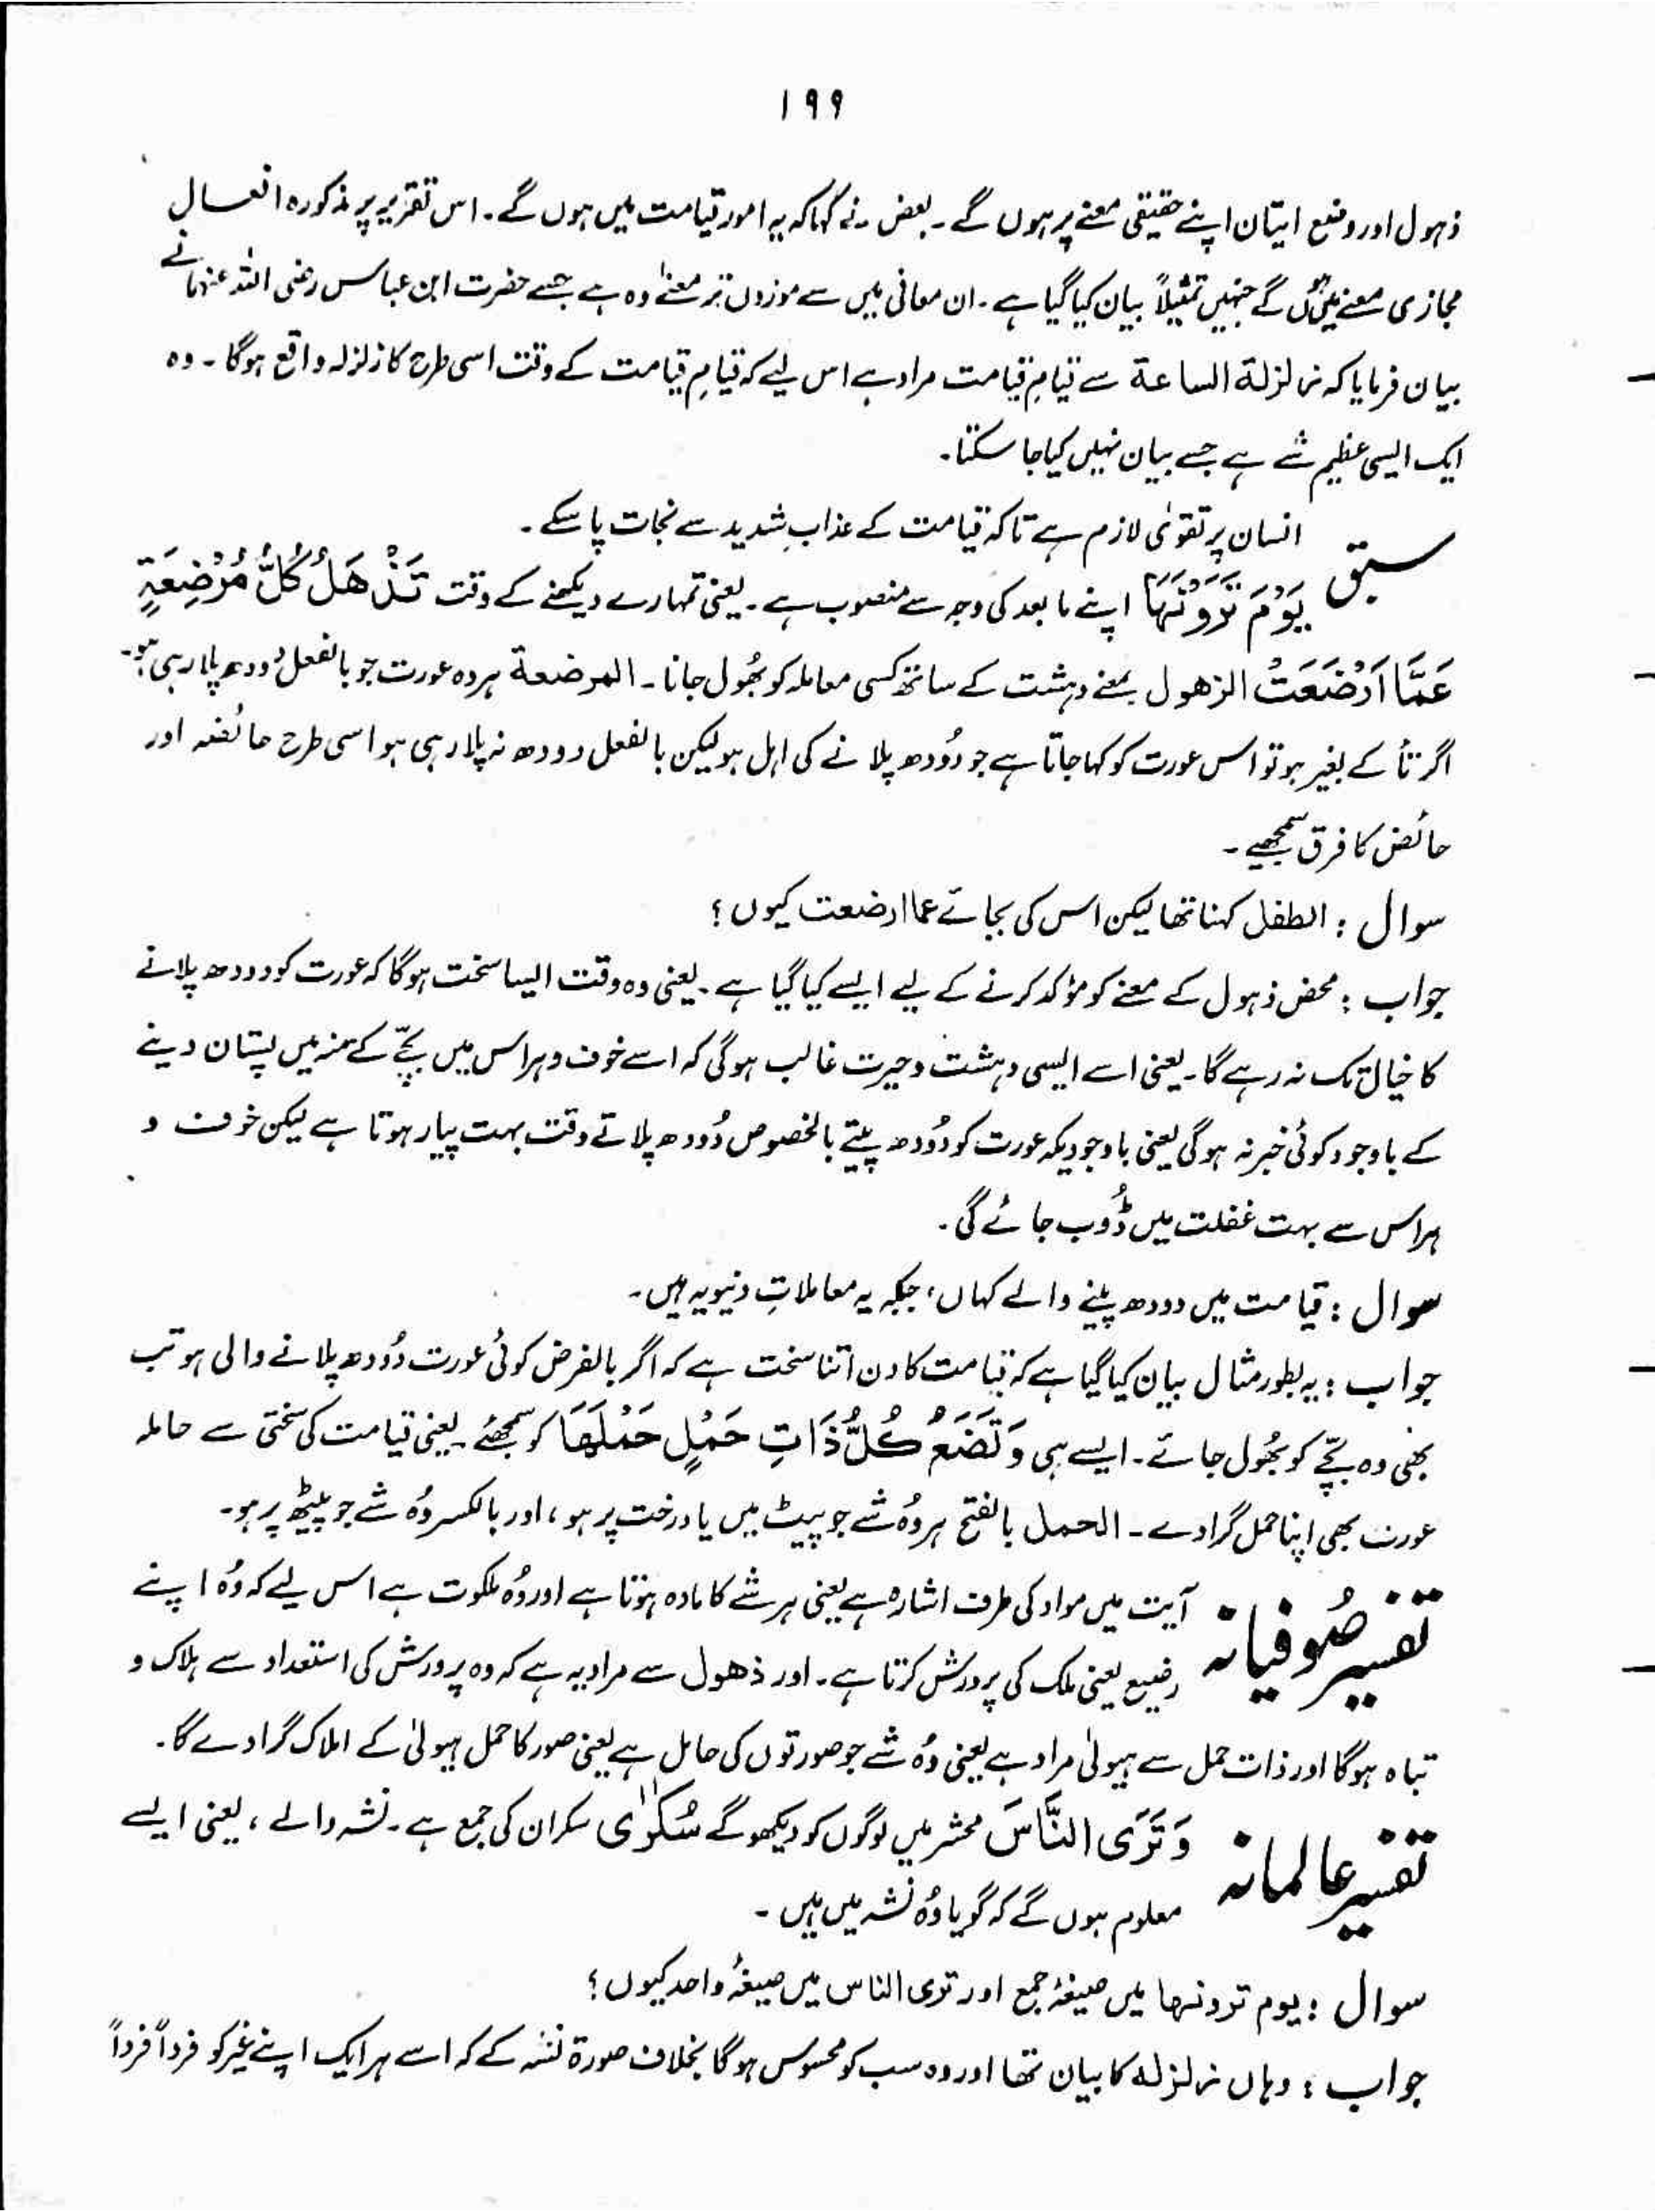 ۱۹۹
ذہول اور وضع ایتان اپنے حقیقی معنے پر ہوں گے۔ بعض نے کہا کہ یہ امور قیامت میں ہوں گے۔ اس تقریر پر مذکورہ افعال
مجازی معنے میں ہوں گے جنہیں تمثیلاً بیان کیا گیا ہے۔ ان معانی میں سے موزوں تر معنےٰ وہ ہے جسے حضرت ابن عباس رضی اللہ عنہما نے
بیان فرمایا کہ زلزلة الساعة سے قیامِ قیامت مراد ہے اس لیے کہ قیامِ قیامت کے وقت اسی طرح کا زلزلہ واقع ہوگا۔ وہ
ایک ایسی عظیم شے ہے جسے بیان نہیں کیا جا سکتا۔
سبق انسان پر تقویٰ لازم ہے تاکہ قیامت کے عذابِ شدید سے نجات پا سکے۔
یَوْمَ تَرَوْنَہَا اپنے مابعد کی وجہ سے منصوب ہے۔ یعنی تمہارے دیکھنے کے وقت تَذْهَلُ كُلُّ مُرْضِعَةٍ
عَمَّا اَرْضَعَتْ الزھول بمعنے دہشت کے ساتھ کسی معاملہ کو بھُول جانا۔ المرضعة ہر وہ عورت جو بالفعل دودھ پلا رہی ہو۔
اگر تأ کے بغیر ہو تو اس عورت کو کہا جاتا ہے جو دُودھ پلانے کی اہل ہو لیکن بالفعل دودھ نہ پلا رہی ہو اسی طرح حائضہ اور
حائض کا فرق سمجھیے۔
سوال : الطفل کہنا تھا لیکن اس کی بجائے عما ارضعت کیوں؟
جواب : محض ذہول کے معنے کو مؤکد کرنے کے لیے ایسے کیا گیا ہے۔ یعنی وہ وقت ایسا سخت ہوگا کہ عورت کو دودھ پلانے
کا خیال تک نہ رہے گا۔ یعنی اسے ایسی دہشت و حیرت غالب ہوگی کہ اسے خوف و ہراس میں بچّے کے منہ میں پستان دینے
کے باوجود کوئی خبر نہ ہوگی یعنی باوجودیکہ عورت کو دُودھ پیتے بالخصوص دُودھ پلاتے وقت بہت پیار ہوتا ہے لیکن خوف و
ہراس سے بہت غفلت میں ڈُوب جائے گی۔
سوال : قیامت میں دودھ پینے والے کہاں، جبکہ یہ معاملاتِ دنیویہ ہیں۔
جواب : یہ بطور مثال بیان کیا گیا ہے کہ قیامت کا دن اتنا سخت ہے کہ اگر بالفرض کوئی عورت دُودھ پلانے والی ہو تب
بھی وہ بچّے کو بھُول جائے۔ ایسے ہی وَتَضَعُ كُلُّ ذَاتِ حَمْلٍ حَمْلَهَا کو سمجھئے۔ یعنی قیامت کی سختی سے حاملہ
عورت بھی اپنا حمل گرا دے۔ الحمل بالفتح ہر وُہ شے جو پیٹ میں یا درخت پر ہو، اور بالکسر وُہ شے جو پیٹھ پر ہو۔
تفسیر صُوفیانہ آیت میں مواد کی طرف اشارہ ہے یعنی ہر شے کا مادہ ہوتا ہے اور وُہ ملکوت ہے اس لیے کہ وُہ اپنے
رضیع یعنی ملک کی پرورش کرتا ہے۔ اور ذھول سے مراد یہ ہے کہ وہ پرورش کی استعداد سے ہلاک و
تباہ ہوگا اور ذات حمل سے ہیولیٰ مراد ہے یعنی وُہ شے جو صورتوں کی حامل ہے یعنی صور کا حمل ہیولیٰ کے املاک گرا دے گا۔
تفسیر عالمانہ وَتَرَى النَّاسَ محشر میں لوگوں کو دیکھو گے سُكٰرٰى سکران کی جمع ہے۔ نشہ والے، یعنی ایسے
معلوم ہوں گے کہ گویا وُہ نشہ میں ہیں۔
سوال : یوم ترونہا میں صیغۂ جمع اور تری الناس میں صیغۂ واحد کیوں؟
جواب : وہاں زلزلہ کا بیان تھا اور وہ سب کو محسوس ہوگا بخلاف صورة نشہ کے کہ اسے ہر ایک اپنے غیر کو فرداً فرداً